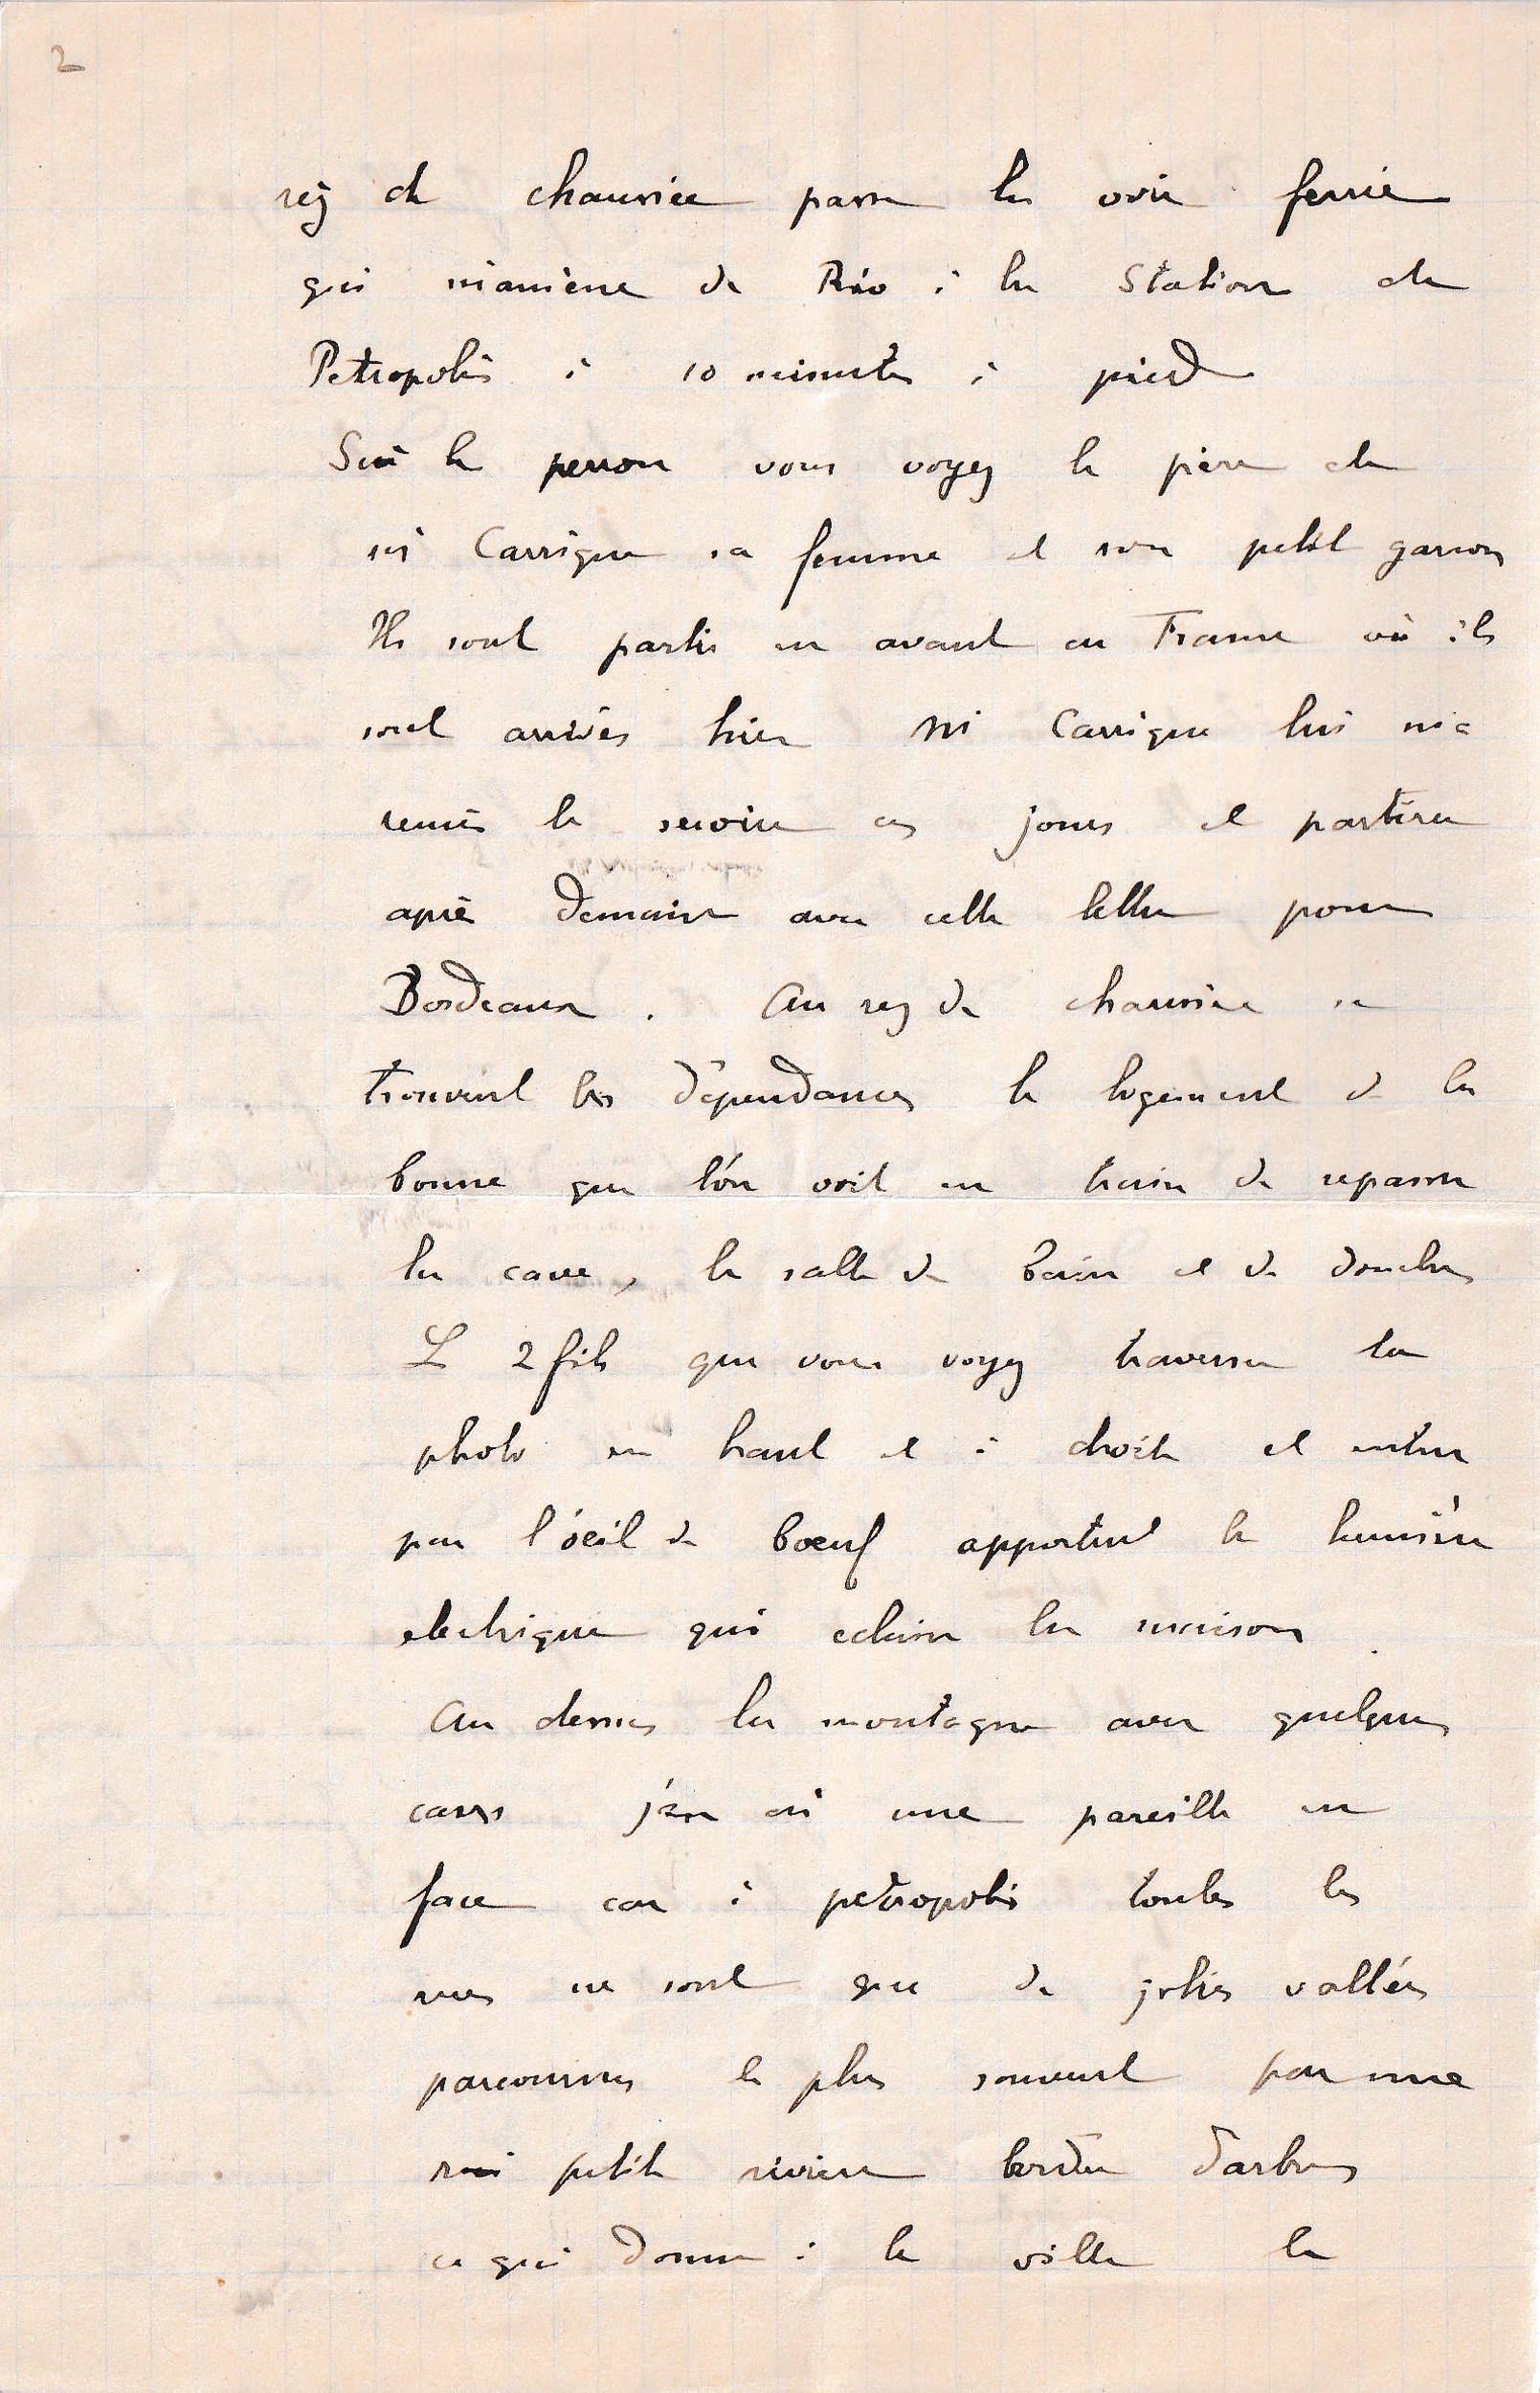 2
rez de chaussée passe la voie ferrée
qui m'amène de Rio à la Station de
Petropolis à 10 minutes à pied
Sur le perron vous voyez le père de
Mr Carrigue sa femme et son petit garson
Ils sont partis en avant en France où ils
sont arrivés hier Mr Carrigue lui m'a
remis le service ces jours et partira
après demain avec cette lettre pour
Bordeaux. Au rez de chaussée se
trouvent les dépendances le logement de la
bonne que l'on voit en train de repasser
la cave, la salle de bain et de douches
Les 2 fils que vous voyez traverser la
photo en haut et à droite et entrer
par l'oeil de boeuf apportent la lumière
electrique qui eclaire la maison.
Au dessus la montagne avec quelques
cases j'en ai une pareille en
face car à petropolis toutes les
rues ne sont que de jolies vallées
parcourues le plus souvent par une
petite riviere bordée d'arbres
ce qui donne à la ville le